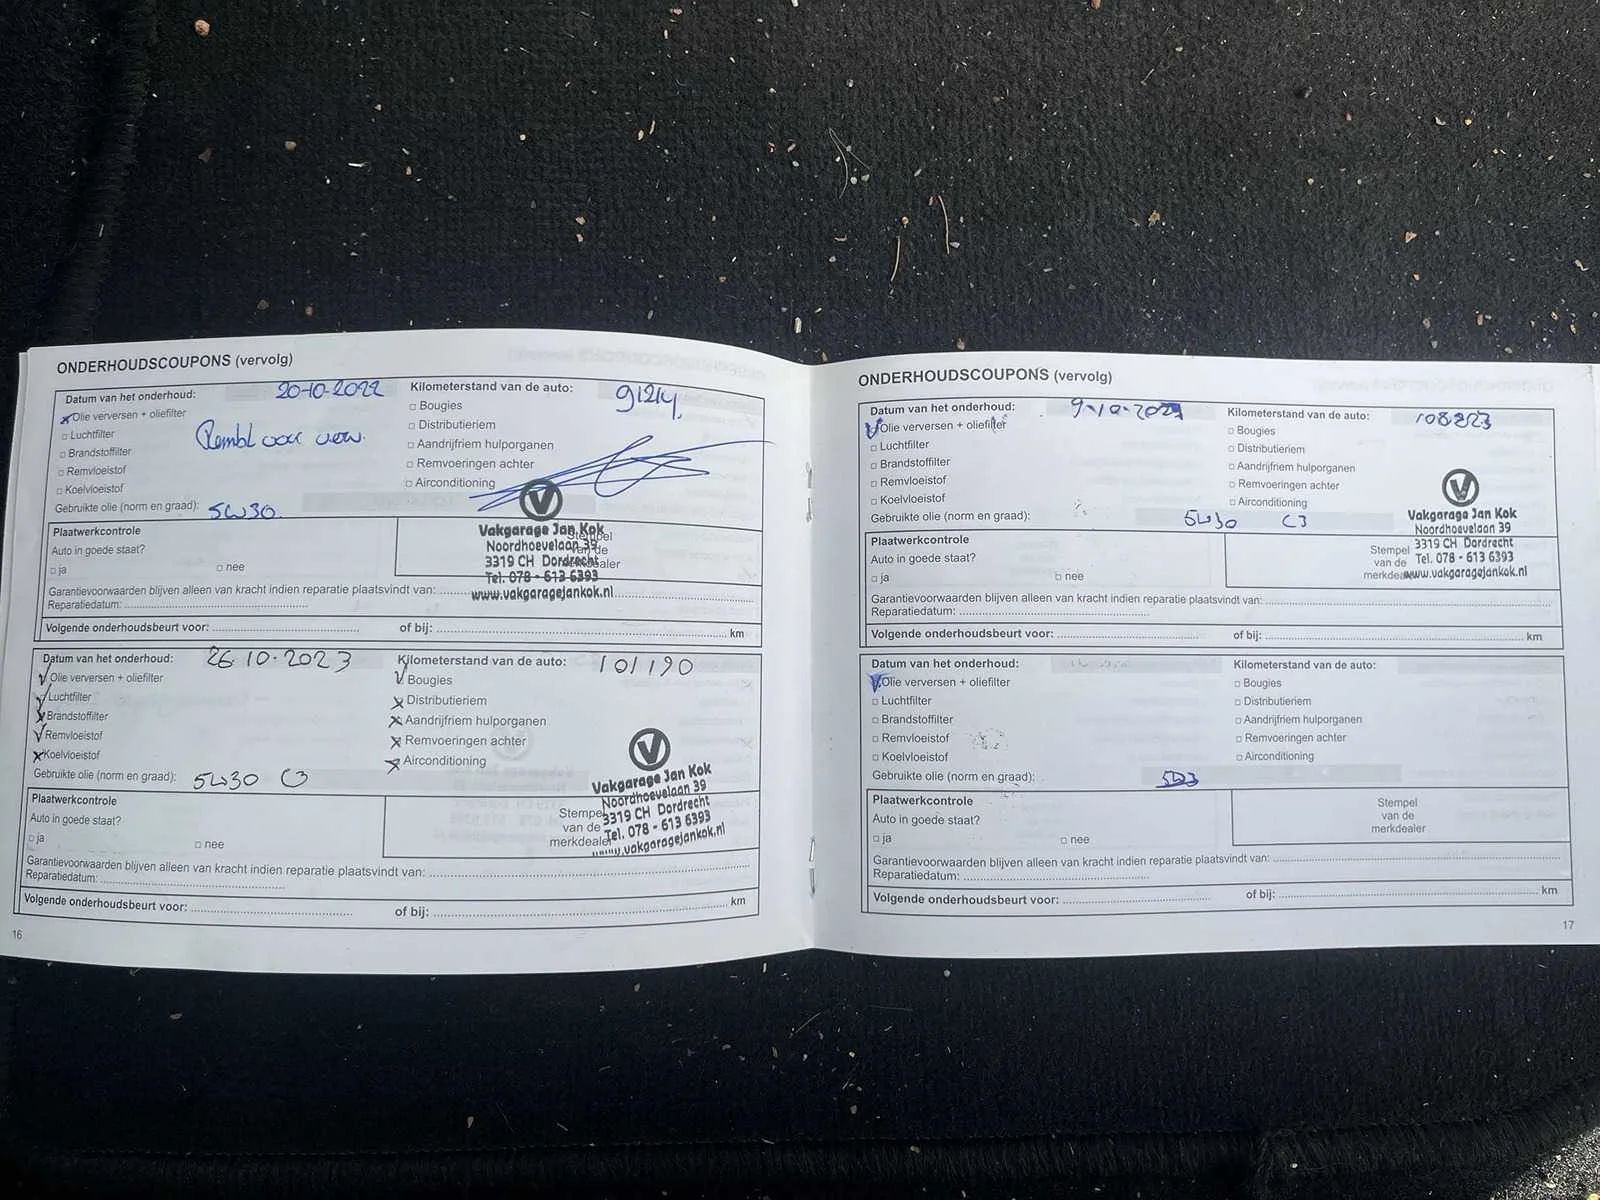 ONDERHOUDSCOUPONS (vervolg)
Datum van het onderhoud: 20-10-2022 Kilometerstand van de auto: 91214
Olie verversen + oliefilter
Luchtfilter
Brandstoffilter
Remvloeistof
Koelvloeistof
Rembl voor verv.
Bougies
Distributieriem
Aandrijfriem hulporganen
Remvoeringen achter
Airconditioning
Gebruikte olie (norm en graad): 5W30
Plaatwerkcontrole
Auto in goede staat?
ja nee
Stempel van de merkdealer
Vakgarage Jan Kok
Noordhoevelaan 39
3319 CH Dordrecht
Tel. 078 - 613 6393
www.vakgaragejankok.nl
Garantievoorwaarden blijven alleen van kracht indien reparatie plaatsvindt van:
Reparatiedatum:
Volgende onderhoudsbeurt voor: of bij: km
Datum van het onderhoud: 26 10-2023 Kilometerstand van de auto: 101190
Olie verversen + oliefilter
Luchtfilter
Brandstoffilter
Remvloeistof
Koelvloeistof
Bougies
Distributieriem
Aandrijfriem hulporganen
Remvoeringen achter
Airconditioning
Gebruikte olie (norm en graad): 5W30 C3
Plaatwerkcontrole
Auto in goede staat?
ja nee
Stempel
van de
merkdealer
Vakgarage Jan Kok
Noordhoevelaan 39
3319 CH Dordrecht
Tel. 078 - 613 6393
www.vakgaragejankok.nl
Garantievoorwaarden blijven alleen van kracht indien reparatie plaatsvindt van:
Reparatiedatum:
Volgende onderhoudsbeurt voor: of bij: km
16
ONDERHOUDSCOUPONS (vervolg)
Datum van het onderhoud: Kilometerstand van de auto:
Olie verversen + oliefilter
Luchtfilter
Brandstoffilter
Remvloeistof
Koelvloeistof
Bougies
Distributieriem
Aandrijfriem hulporganen
Remvoeringen achter
Airconditioning
Gebruikte olie (norm en graad): 5W30 C3
Plaatwerkcontrole
Auto in goede staat?
ja nee
Stempel
van de
merkdealer
Vakgarage Jan Kok
Noordhoevelaan 39
3319 CH Dordrecht
Tel. 078 - 613 6393
www.vakgaragejankok.nl
Garantievoorwaarden blijven alleen van kracht indien reparatie plaatsvindt van:
Reparatiedatum:
Volgende onderhoudsbeurt voor: of bij: km
Datum van het onderhoud: Kilometerstand van de auto:
Olie verversen + oliefilter
Luchtfilter
Brandstoffilter
Remvloeistof
Koelvloeistof
Bougies
Distributieriem
Aandrijfriem hulporganen
Remvoeringen achter
Airconditioning
Gebruikte olie (norm en graad):
Plaatwerkcontrole
Auto in goede staat?
ja nee
Stempel
van de
merkdealer
Garantievoorwaarden blijven alleen van kracht indien reparatie plaatsvindt van:
Reparatiedatum:
Volgende onderhoudsbeurt voor: of bij: km
17